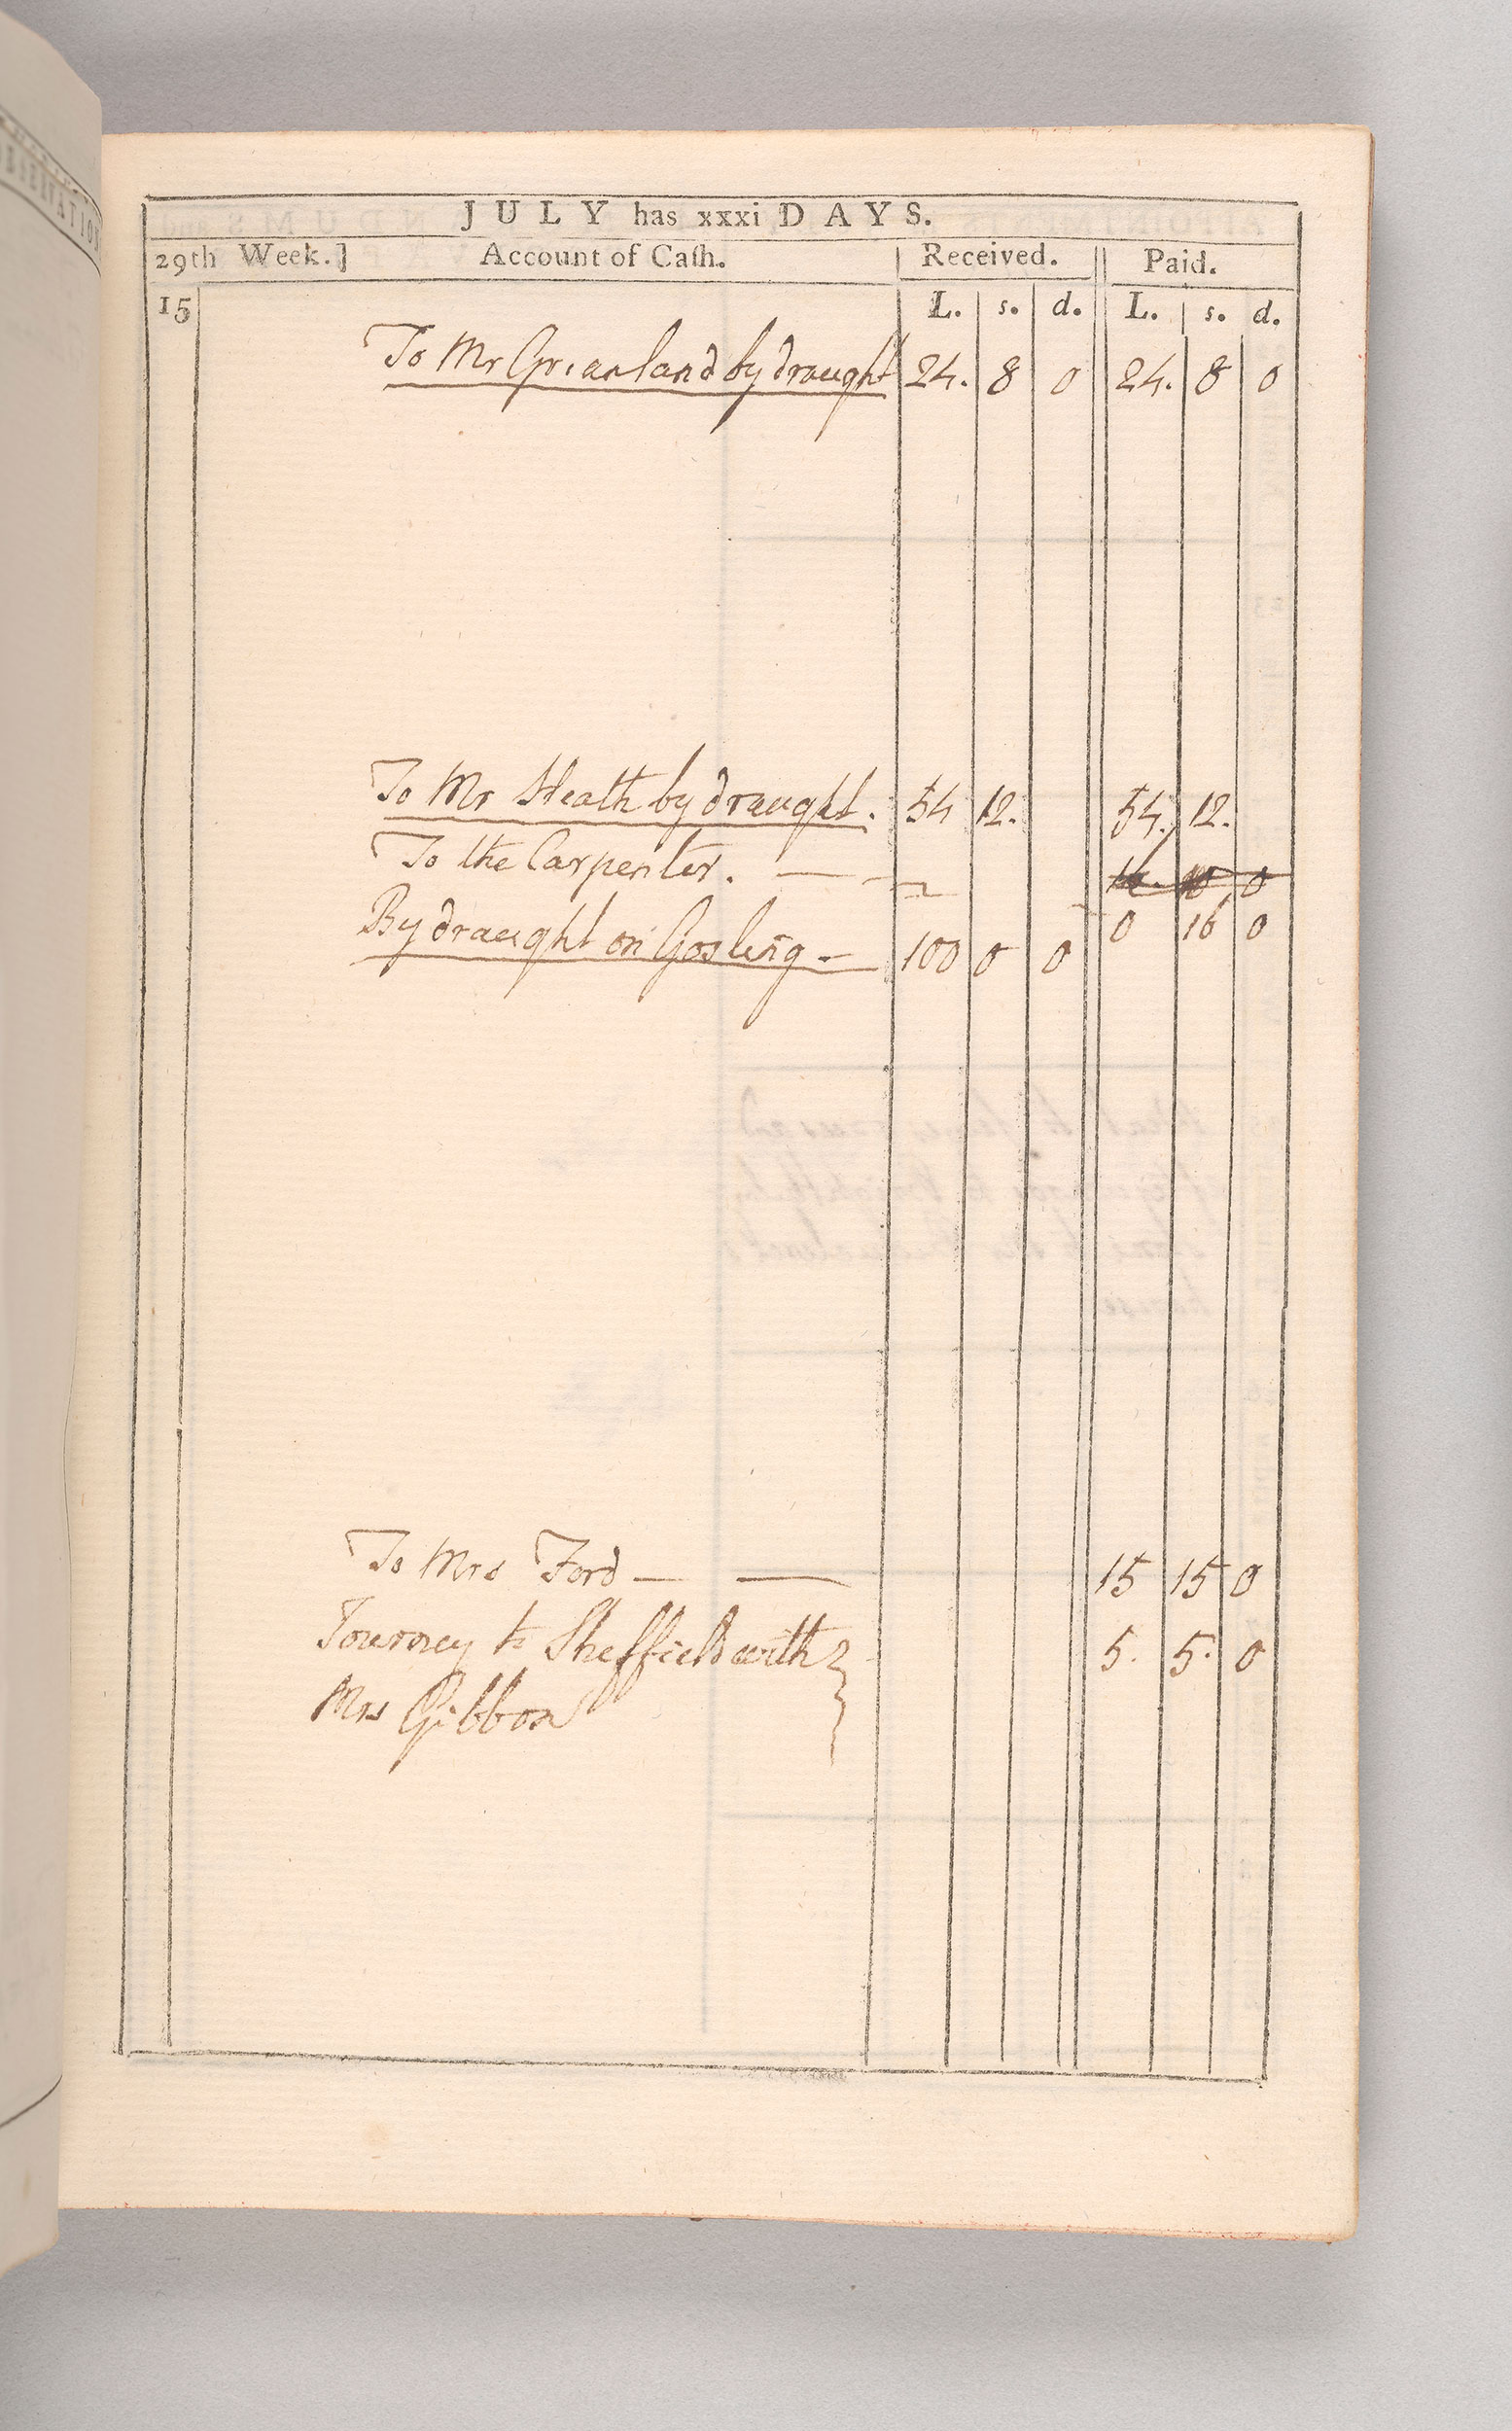 JULY has xxxi DAYS.
29th Week.] Account of Caſh. Received. Paid.
15 L. s. d. L. s. d.
To Mr Grianland by draught 24. 8 0 24. 8 0
To Mr Heath by draught. 54 12. 54. 12.
To the Carpenter. — — 0
0 16 0
By draught on Gosling — 100 0 0
To Mrs Ford — — 15 15 0
Journey to Sheffield with 5. 5. 0
Mrs Gibbon